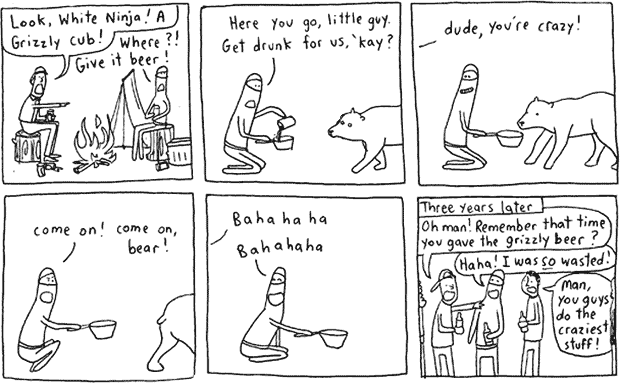 Look, White Ninja! A
Grizzly cub!
Where?!
Give it beer!
Here you go, little guy.
Get drunk for us, 'kay?
dude, you're crazy!
come on! come on,
bear!
Bahahaha
Bahahaha
Three years later
Oh man! Remember that time
you gave the grizzly beer?
Haha! I was so wasted!
Man,
you guys
do the
craziest
stuff!